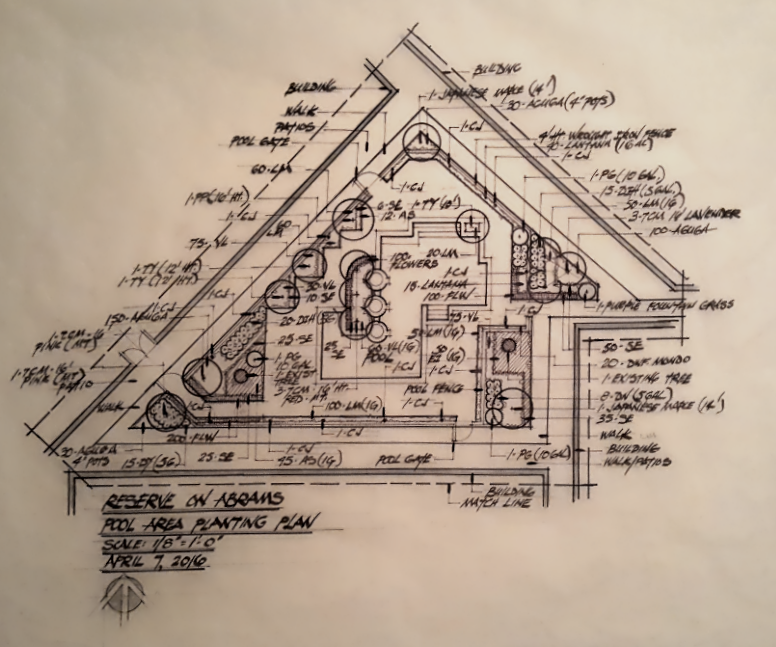 BUILDING
1-JAPANESE MAPLE (14')
30-AGUGA (4" POTS)
BUILDING
WALK
PATIOS
POOL GATE
1-CJ
4' HT. WROUGHT IRON FENCE
40-LANTANA (1 GAL)
1-CJ
60-LM
1-PG (10 GAL)
15-DIH (5 GAL)
50-LM (1G)
3-7CM 16' LAVENDER
100-AGUGA
1-CJ
1-CJ
6-SE 1-TY (10')
12-AS
75-VL
1-TY (12' HT)
1-TY (12' HT)
100-
FLOWERS
20-LM
1-CJ
18-LANTANA
100-FLW
30-VL
10-SE
1-CJ
1-CJ
150-AGUGA
1-PURPLE FOUNTAIN GRASS
20-DIH (5G)
25-SE
1-PG
10 GAL
1-EXIST
TREE
3-7CM-16' HT.
RED-HT.
25
SE
POOL
75-VL
50-LM (1G)
1-CJ
50-SE
20-DWF MONDO
1-EXISTING TREE
8-DN (5 GAL)
1-JAPANESE MAPLE (14')
35-SE
WALK
BUILDING
WALK/PATIOS
POOL FENCE
1-CJ
WALK
1-CJ
100-LM (1G)
1-CJ
200-FLW
1-CJ
30-AGUGA
4" POTS
15-DY (5G)
25-SE
45-AS (1G)
POOL GATE
1-PG (10 GAL)
BUILDING
MATCH LINE
RESERVE ON ABRAMS
POOL AREA PLANTING PLAN
SCALE: 1/8"=1'-0"
APRIL 7, 2016